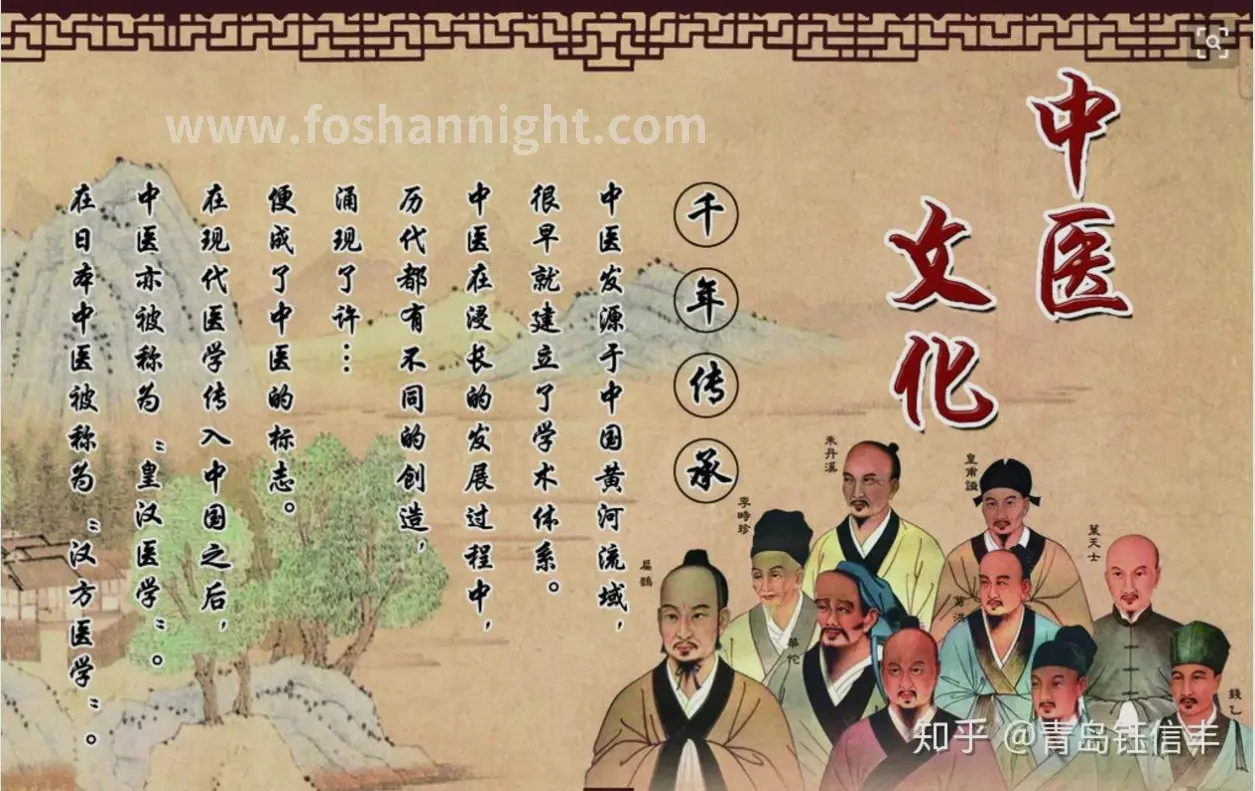 中医
文化
千年传承
中医发源于中国黄河流域，
很早就建立了学术体系。
中医在浸长的发展过程中，
历代都有不同的创造，
涌现了许…
便成了中医的标志。
在现代医学传入中国之后，
中医亦被称为“皇汉医学”。
在日本中医被称为“汉方医学”。
朱丹溪
皇甫謐
李時珍
葉天士
扁鵲
葛洪
華佗
錢乙
www.foshannight.com
知乎 @青岛钰信丰